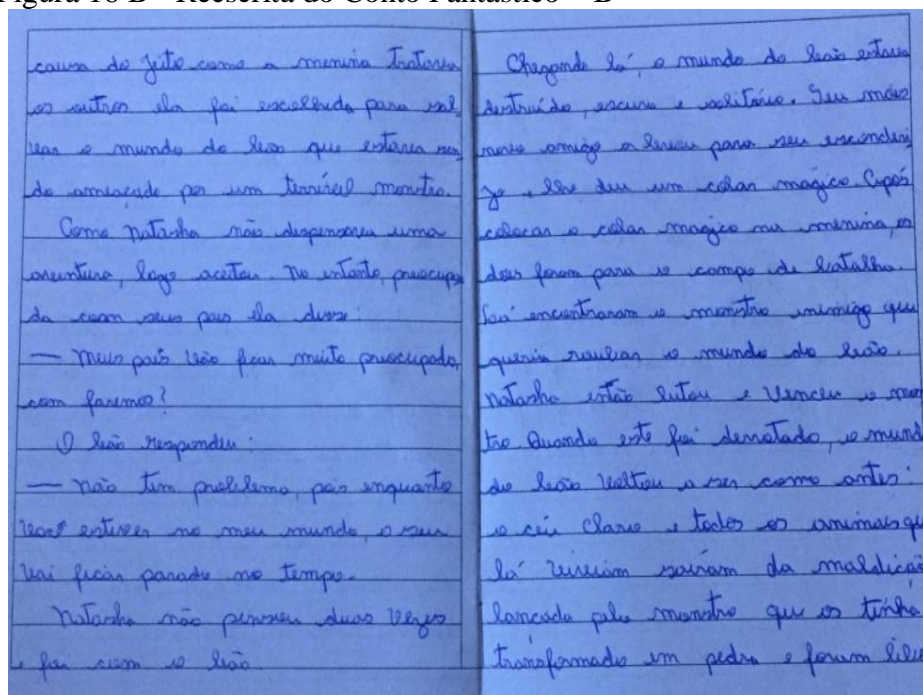 Figura 16 B - Reescrita do Conto Fantástico - B
causa do jeito como a menina tratava
os outros ela foi escolhida para sal
var o mundo do leão que estava sen
do ameaçado por um terrível monstro.
Como Natasha não dispensava uma
aventura, logo aceitou. No entanto, preocupa
da com seus pais ela disse:
— Meus pais vão ficar muito preocupado,
com faremos?
O leão respondeu:
— Não tem problema, pois enquanto
você estiver no meu mundo, o seu
vai ficar parado no tempo.
Natasha não pensou duas vezes
e foi com o leão
Chegando lá, o mundo do leão estava
destruído, escuro e solitário. Seu mais
novo amigo a levou para seu esconderi
jo e lhe deu um colar mágico. Após
colocar o colar magico na menina, os
dois foram para o campo de batalha.
Lá encontraram o monstro inimigo que
queria roubar o mundo do leão.
Natasha então lutou e venceu o mons
tro Quando este foi derrotado, o mund
do leão voltou a ser como antes:
o céu claro e todos os animais qu
lá viviam saíram da maldição
lançada pelo monstro que os tinha
transformado em pedra e foram